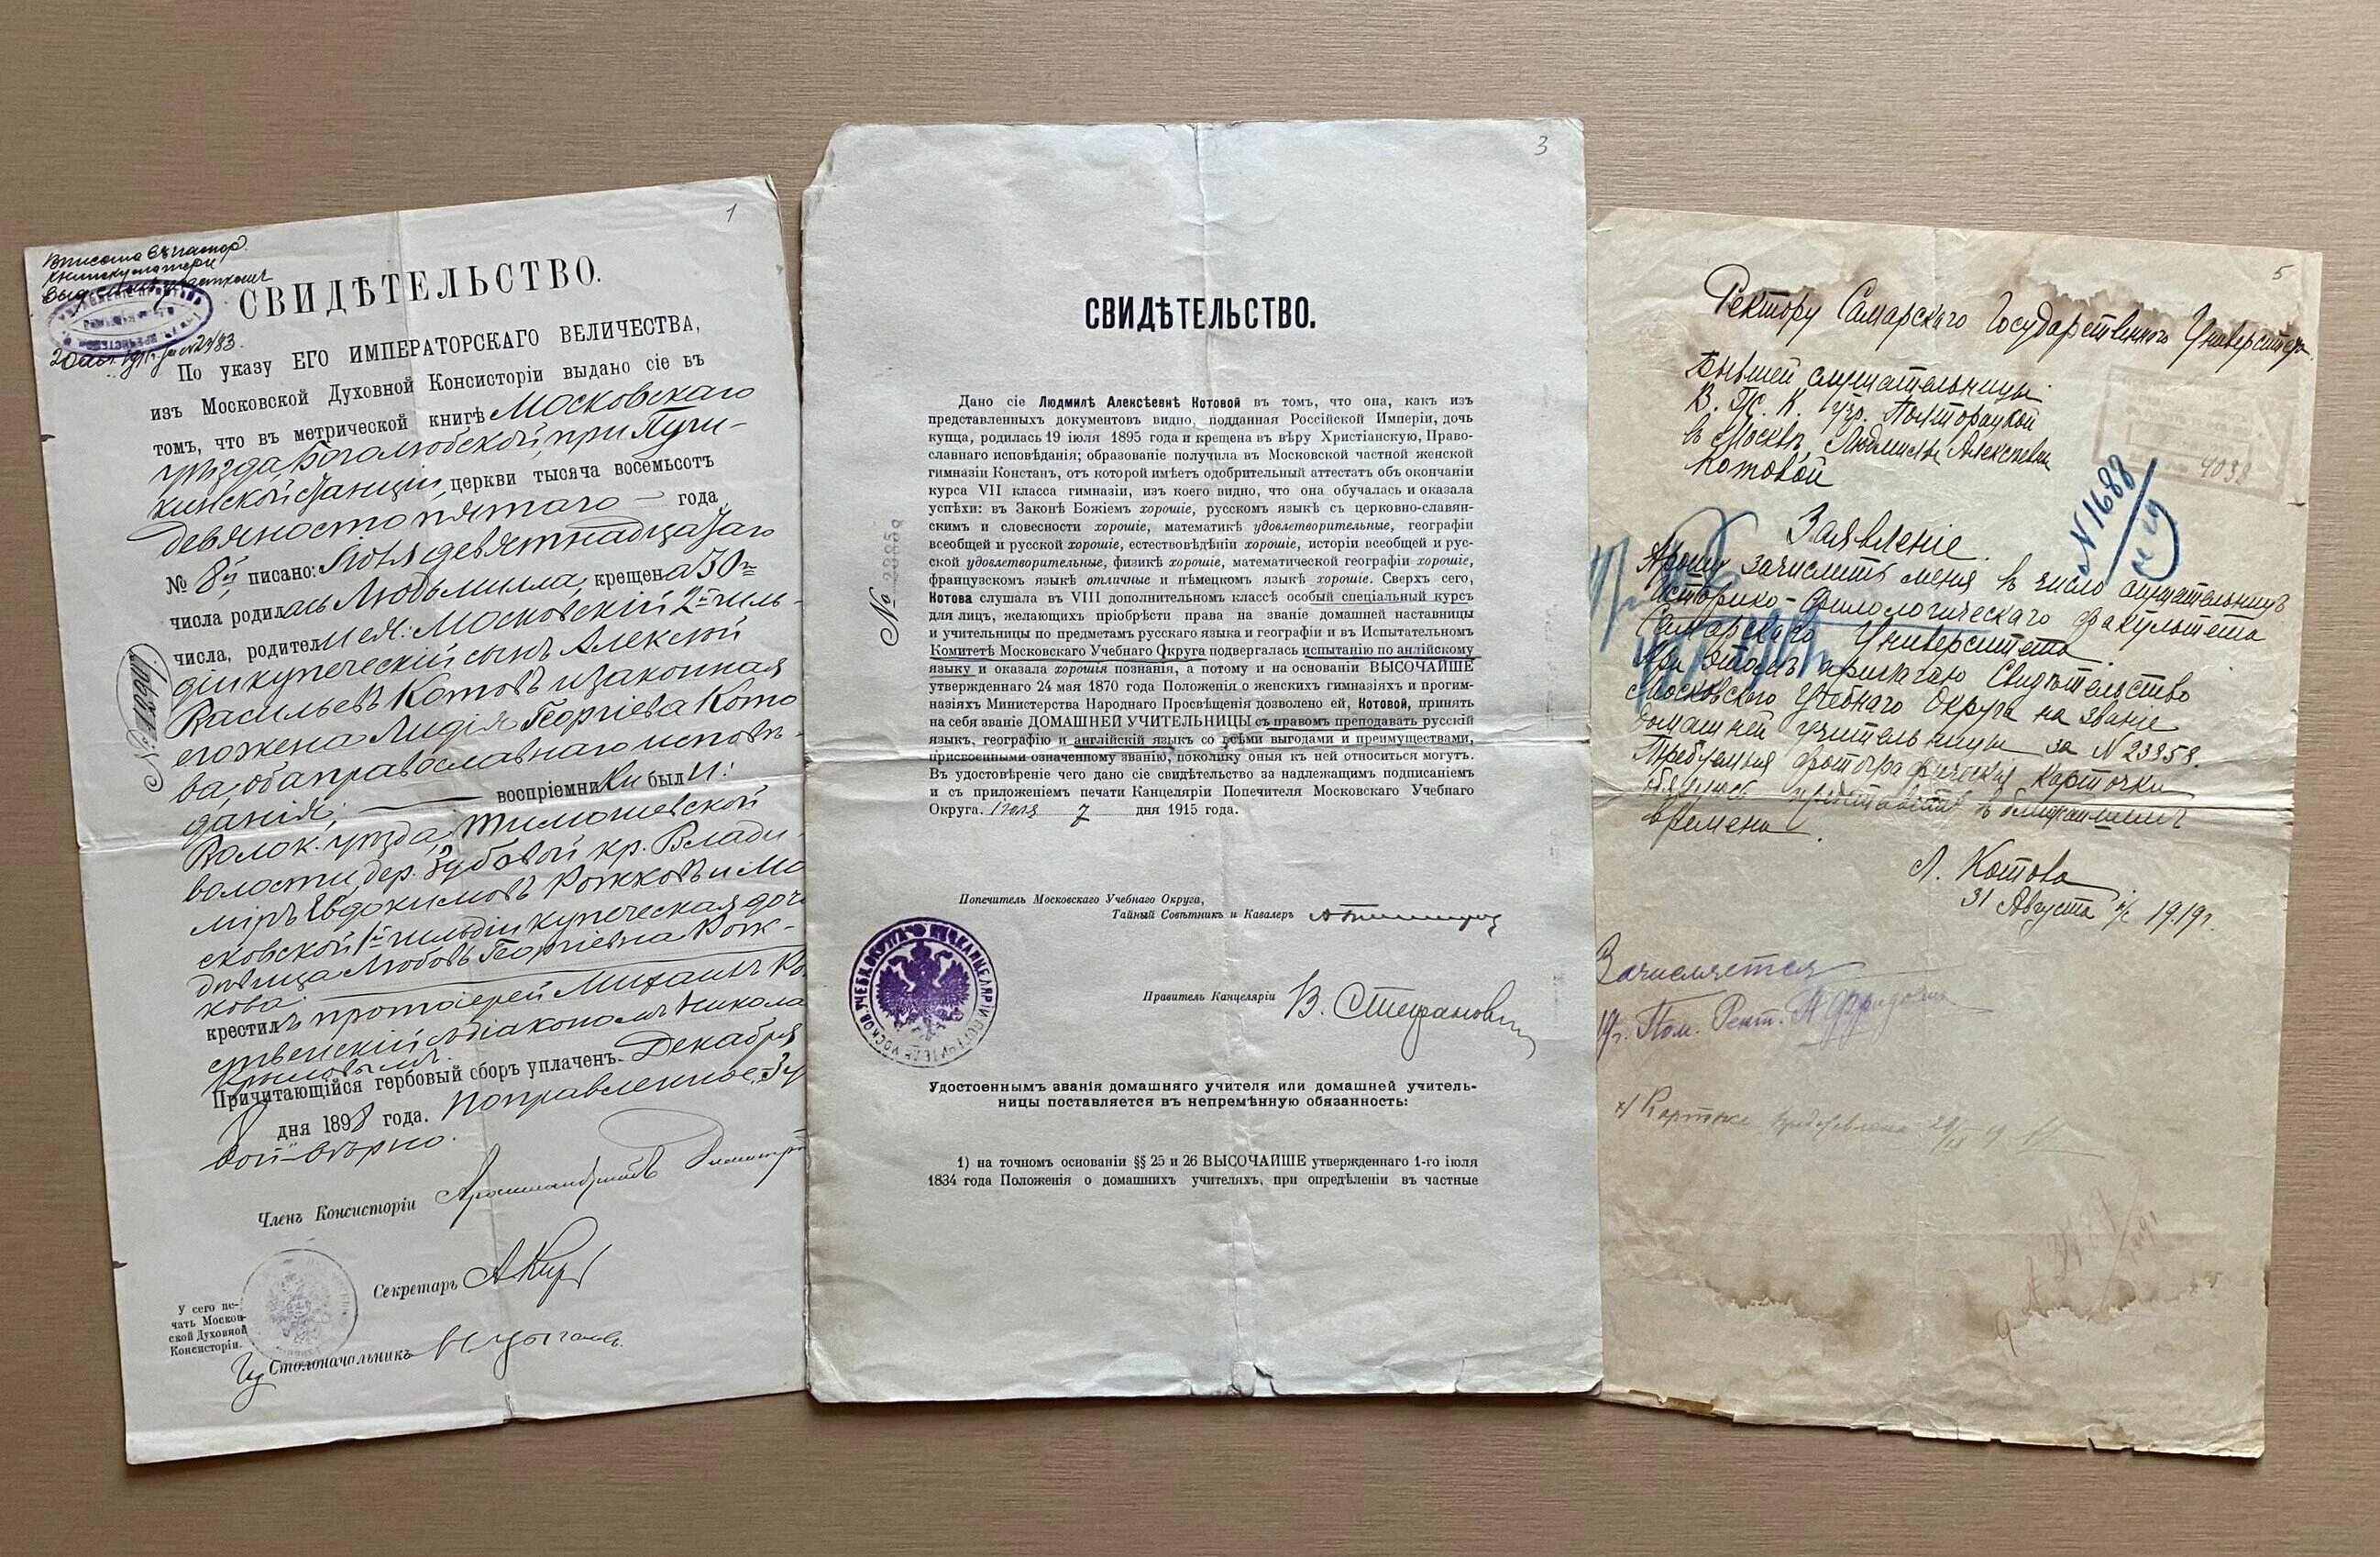 1
СВИДѢТЕЛЬСТВО.
По указу ЕГО ИМПЕРАТОРСКАГО ВЕЛИЧЕСТВА,
изъ Московской Духовной Консисторіи выдано сіе въ
томъ, что въ метрической книгѣ Московскаго
уѣзда, Боголюбской, при Пушкинской станціи, церкви тысяча восемьсотъ
девяносто пятаго года
№ 8й писано: Іюля девятнадцатаго
числа родилась Людьмилла, крещена 30го
числа, родители ея: Московскій 2й гиль-
діи купеческій сынъ Алексѣй
Васильевъ Котовъ и законная
его жена Лидія Георгіева Кото
ва, оба православнаго исповѣ-
данія, воспріемники были:
Волок. уѣзда, Тимошевской
волости, дер. Зубовой кр. Влади
міръ Евдокимовъ Рожковъ и Мо
сковской 1й гильдіи купеческая дочь
дѣвица Любовь Георгіевна Рож-
кова.
крестилъ протоіерей Михаилъ
съ діакономъ Никола
Крыловымъ.
Причитающійся гербовый сборъ уплаченъ. Декабря
8 дня 1898 года. Поправленное: Зу
бой-вѣрно.
Членъ Консисторіи Архимандритъ
Секретарь
У сего пе-
чать Москов-
ской Духовной
Консисторіи.
Столоначальникъ
3
СВИДѢТЕЛЬСТВО.
Дано сіе Людмилѣ Алексѣевнѣ Котовой въ томъ, что она, какъ изъ
представленныхъ документовъ видно, подданная Россійской Имперіи, дочь
купца, родилась 19 іюля 1895 года и крещена въ вѣру Христіанскую, Право-
славнаго исповѣданія; образованіе получила въ Московской частной женской
гимназіи Констанъ, отъ которой имѣетъ одобрительный аттестатъ объ окончаніи
курса VII класса гимназіи, изъ коего видно, что она обучалась и оказала
успѣхи: въ Законѣ Божіемъ хорошіе, русскомъ языкѣ съ церковно-славян-
скимъ и словесности хорошіе, математикѣ удовлетворительные, географіи
всеобщей и русской хорошіе, естествовѣдѣніи хорошіе, исторіи всеобщей и рус-
ской удовлетворительные, физикѣ хорошіе, математической географіи хорошіе,
французскомъ языкѣ отличные и нѣмецкомъ языкѣ хорошіе. Сверхъ сего,
Котова слушала въ VIII дополнительномъ классѣ особый спеціальный курсъ
для лицъ, желающихъ пріобрѣсти права на званіе домашней наставницы
и учительницы по предметамъ русскаго языка и географіи и въ Испытательномъ
Комитетѣ Московскаго Учебнаго Округа подвергалась испытанію по англійскому
языку и оказала хорошія познанія, а потому и на основаніи ВЫСОЧАЙШЕ
утвержденнаго 24 мая 1870 года Положенія о женскихъ гимназіяхъ и прогим-
назіяхъ Министерства Народнаго Просвѣщенія дозволено ей, Котовой, принять
на себя званіе ДОМАШНЕЙ УЧИТЕЛЬНИЦЫ съ правомъ преподавать русскій
языкъ, географію и англійскій языкъ со всѣми выгодами и преимуществами,
присвоенными означенному званію, поколику оныя къ ней относиться могутъ.
Въ удостовѣреніе чего дано сіе свидѣтельство за надлежащимъ подписаніемъ
и съ приложеніемъ печати Канцеляріи Попечителя Московскаго Учебнаго
Округа. Іюля 7 дня 1915 года.
№ 23858
Попечитель Московскаго Учебнаго Округа,
Тайный Совѣтникъ и Кавалеръ
Правитель Канцеляріи В. Стефановичъ
Удостоеннымъ званія домашняго учителя или домашней учитель-
ницы поставляется въ непремѣнную обязанность:
1) на точномъ основаніи §§ 25 и 26 ВЫСОЧАЙШЕ утвержденнаго 1-го іюля
1834 года Положенія о домашнихъ учителяхъ, при опредѣленіи въ частные
5
Ректору Самарскаго Государственнаго Университета
Бывшей слушательницы
В. Ж. К. учр. Полторацкой
въ Москвѣ, Людмилы Алексѣевны
Котовой
4038
N 1688
Заявленіе.
Прошу зачислить меня въ число слушательницъ
Историко-филологическаго факультета
Самарскаго Университета.
При этомъ прилагаю Свидѣтельство
Московскаго Учебнаго Округа на званіе
домашней учительницы за N 23858.
Требуемыя фотографическія карточки
обязуюсь представить въ ближайшемъ
времени.
Л. Котова
31 Августа н/с 1919г.
Зачисляется
Пом. Рект.